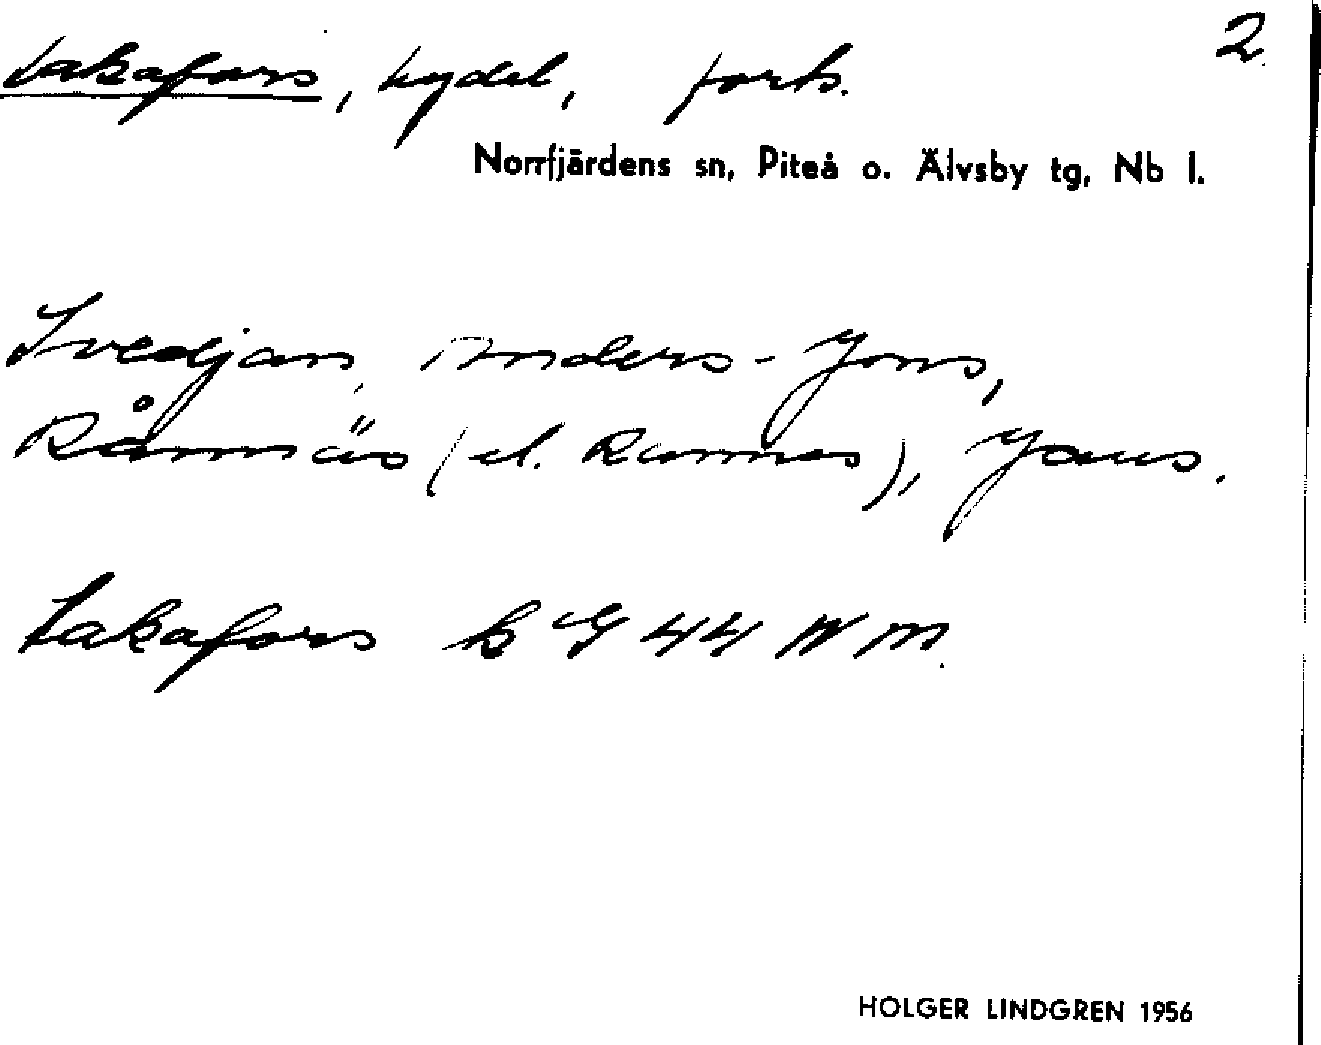 Lakafors, bydel, forts. 2.
Norrfjärdens sn, Piteå o. Älvsby tg, Nb l.
Svedjan, Anders-Jons,
Rånnäs (el. Runnäs), Jans.
Lakafors b G 44 NM.
HOLGER LINDGREN 1956